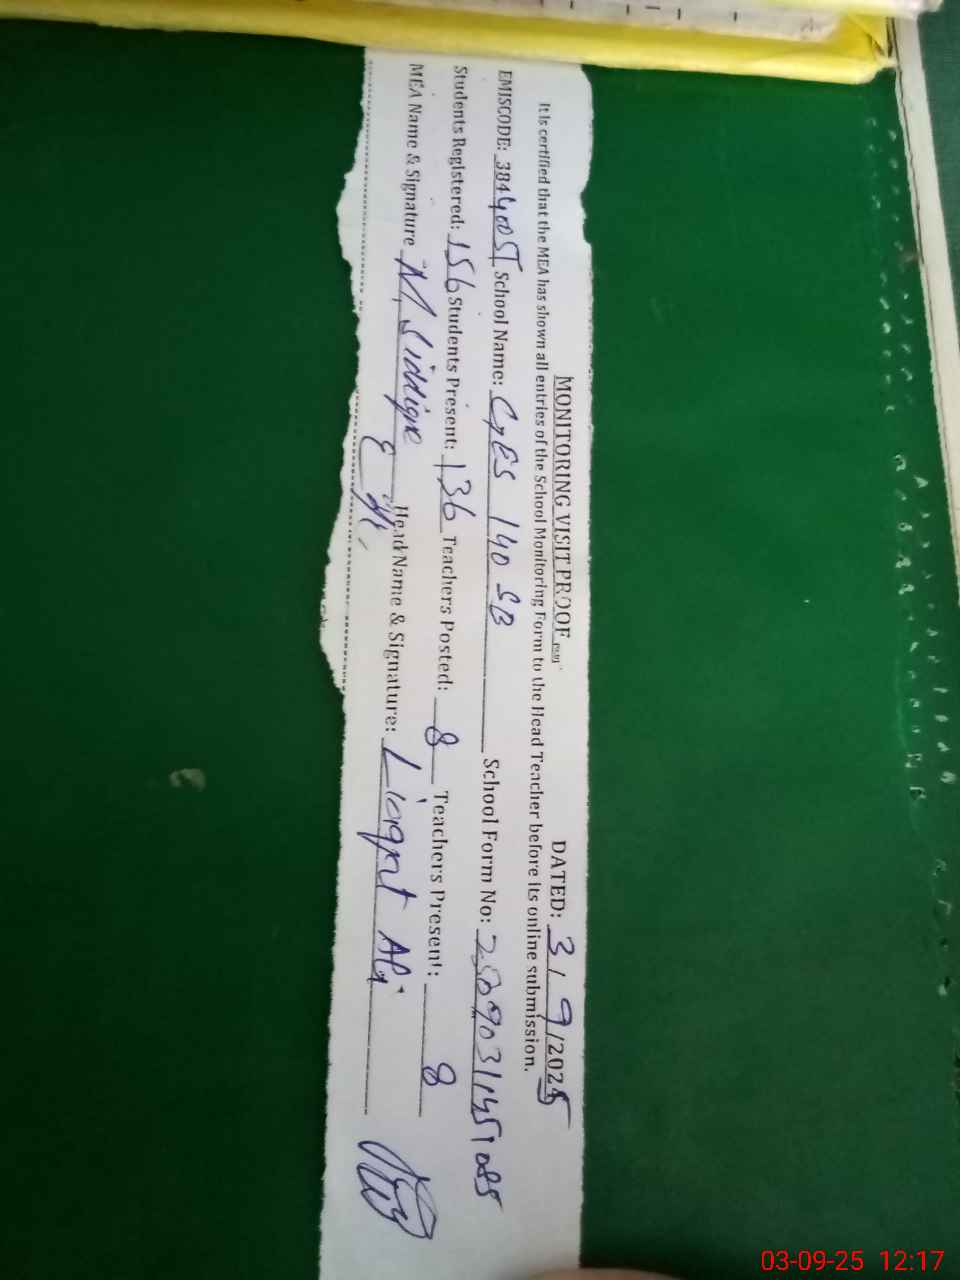 MONITORING VISIT PROOF DATED: 3/9/2025
It is certified that the MEA has shown all entries of the School Monitoring Form to the Head Teacher before its online submission.
EMISCODE: School Name: GES 140 SB School Form No:
Students Registered: 156 Students Present: 136 Teachers Posted: 8 Teachers Present: 8
MEA Name & Signature M. Siddique Head Name & Signature: Liaqat Ali
03-09-25 12:17